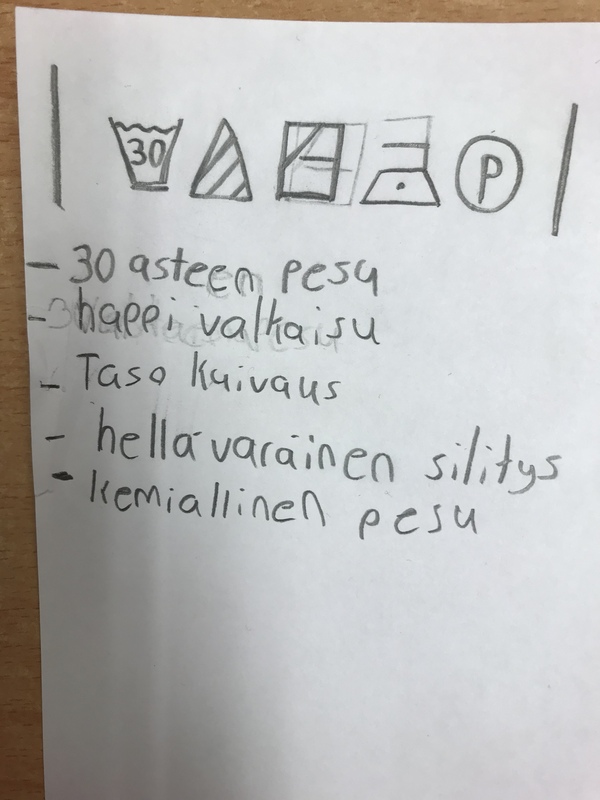 30 P
- 30 asteen pesu
- happi valkaisu
- Taso kuivaus
- hellävaräinen silitys
- kemiallinen pesu